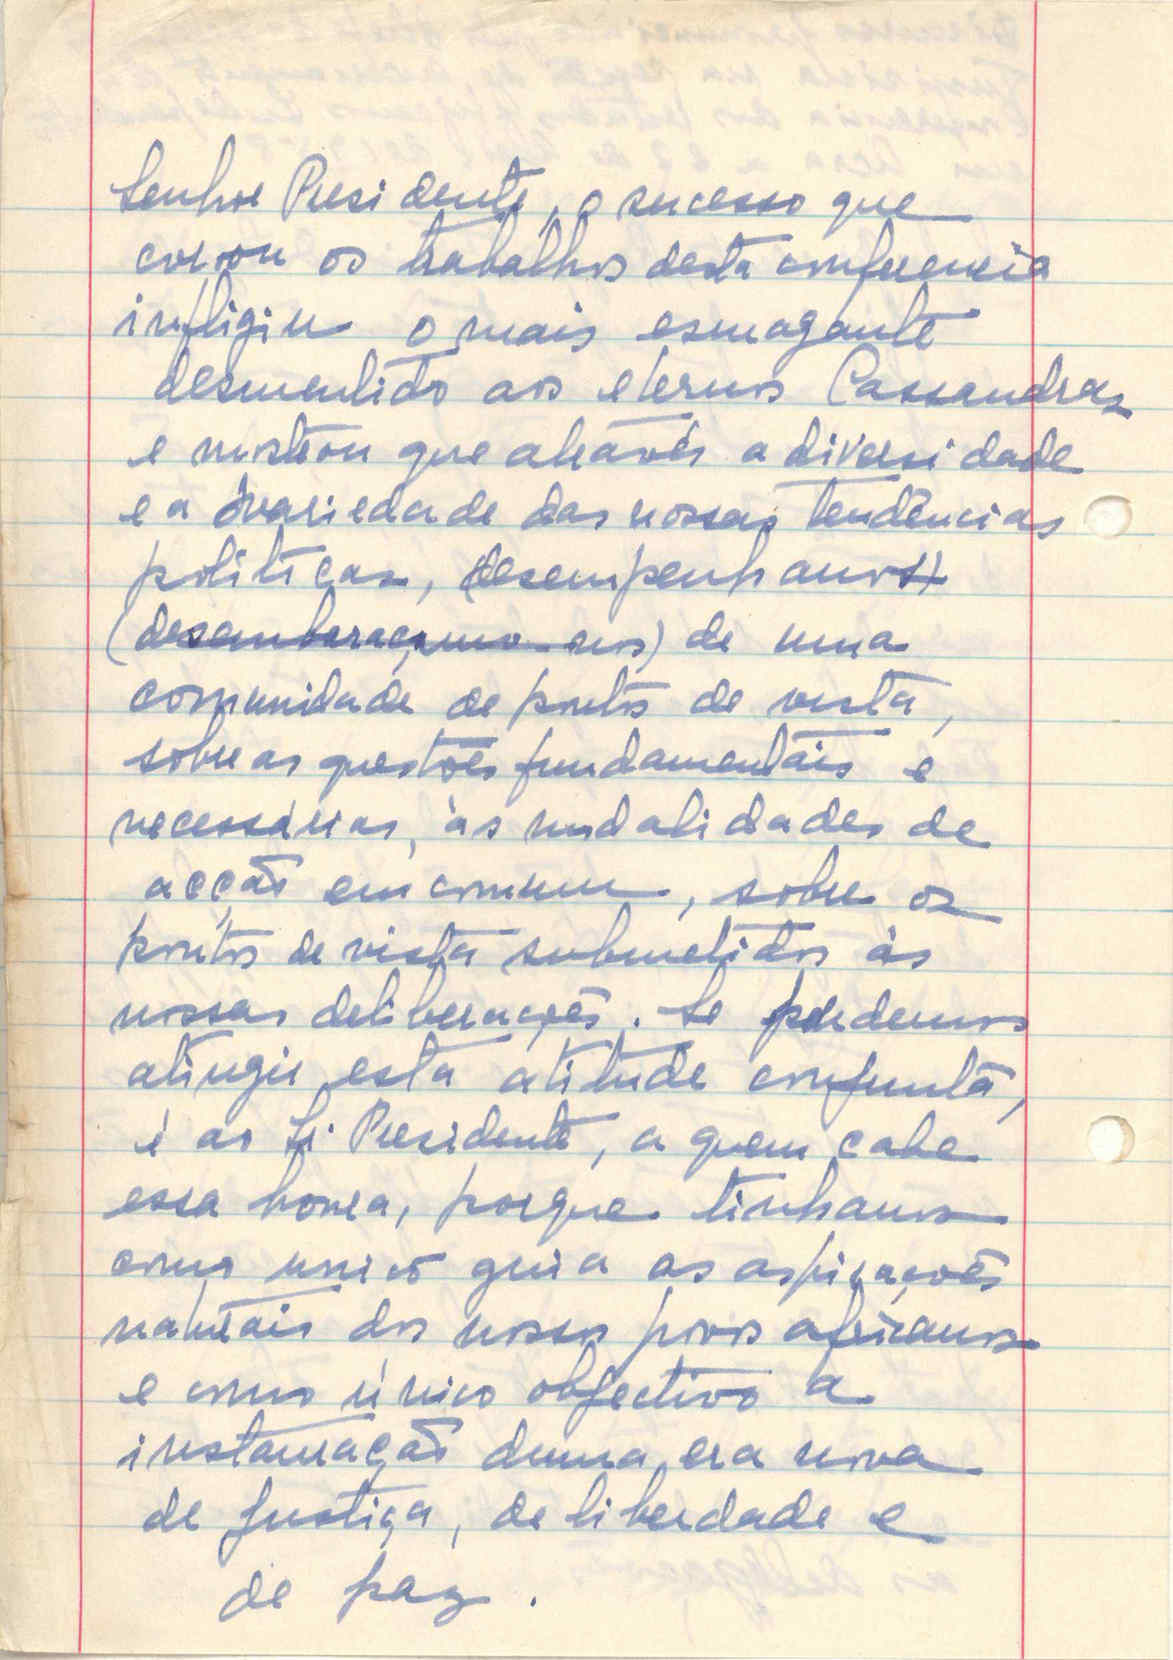 Senhor Presidente, o sucesso que
coroou os trabalhos desta conferencia
infligiu o mais esmagante
desmentido aos eternos Cassandras
e mostrou que através a diversidade
e a variedade das nossas tendências
políticas, desempenhamos
(desembaraçamo-nos) de uma
comunidade de pontos de vista,
sobre as questões fundamentais e
necessárias, às modalidades de
acção em comum, sobre os
pontos de vista submetidos às
nossas deliberações. Se podemos
atingir esta atitude conjunta,
é ao Sr. Presidente, a quem cabe
essa honra, porque tinhamos
como unico guia as aspirações
naturais dos nossos povos africanos
e como único objectivo a
instauração duma era nova
de justiça, de liberdade e
de paz.